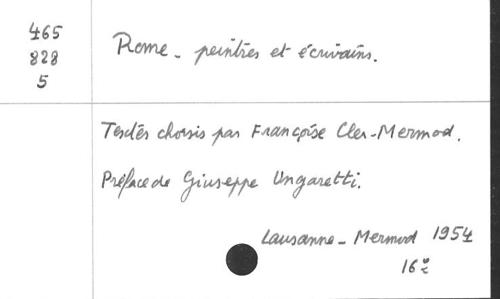 465
828
5
Rome - peintres et écrivains.
Textes choisis par Françoise Cler-Mermod.
Préface de Giuseppe Ungaretti.
Lausanne - Mermod 1954
16º